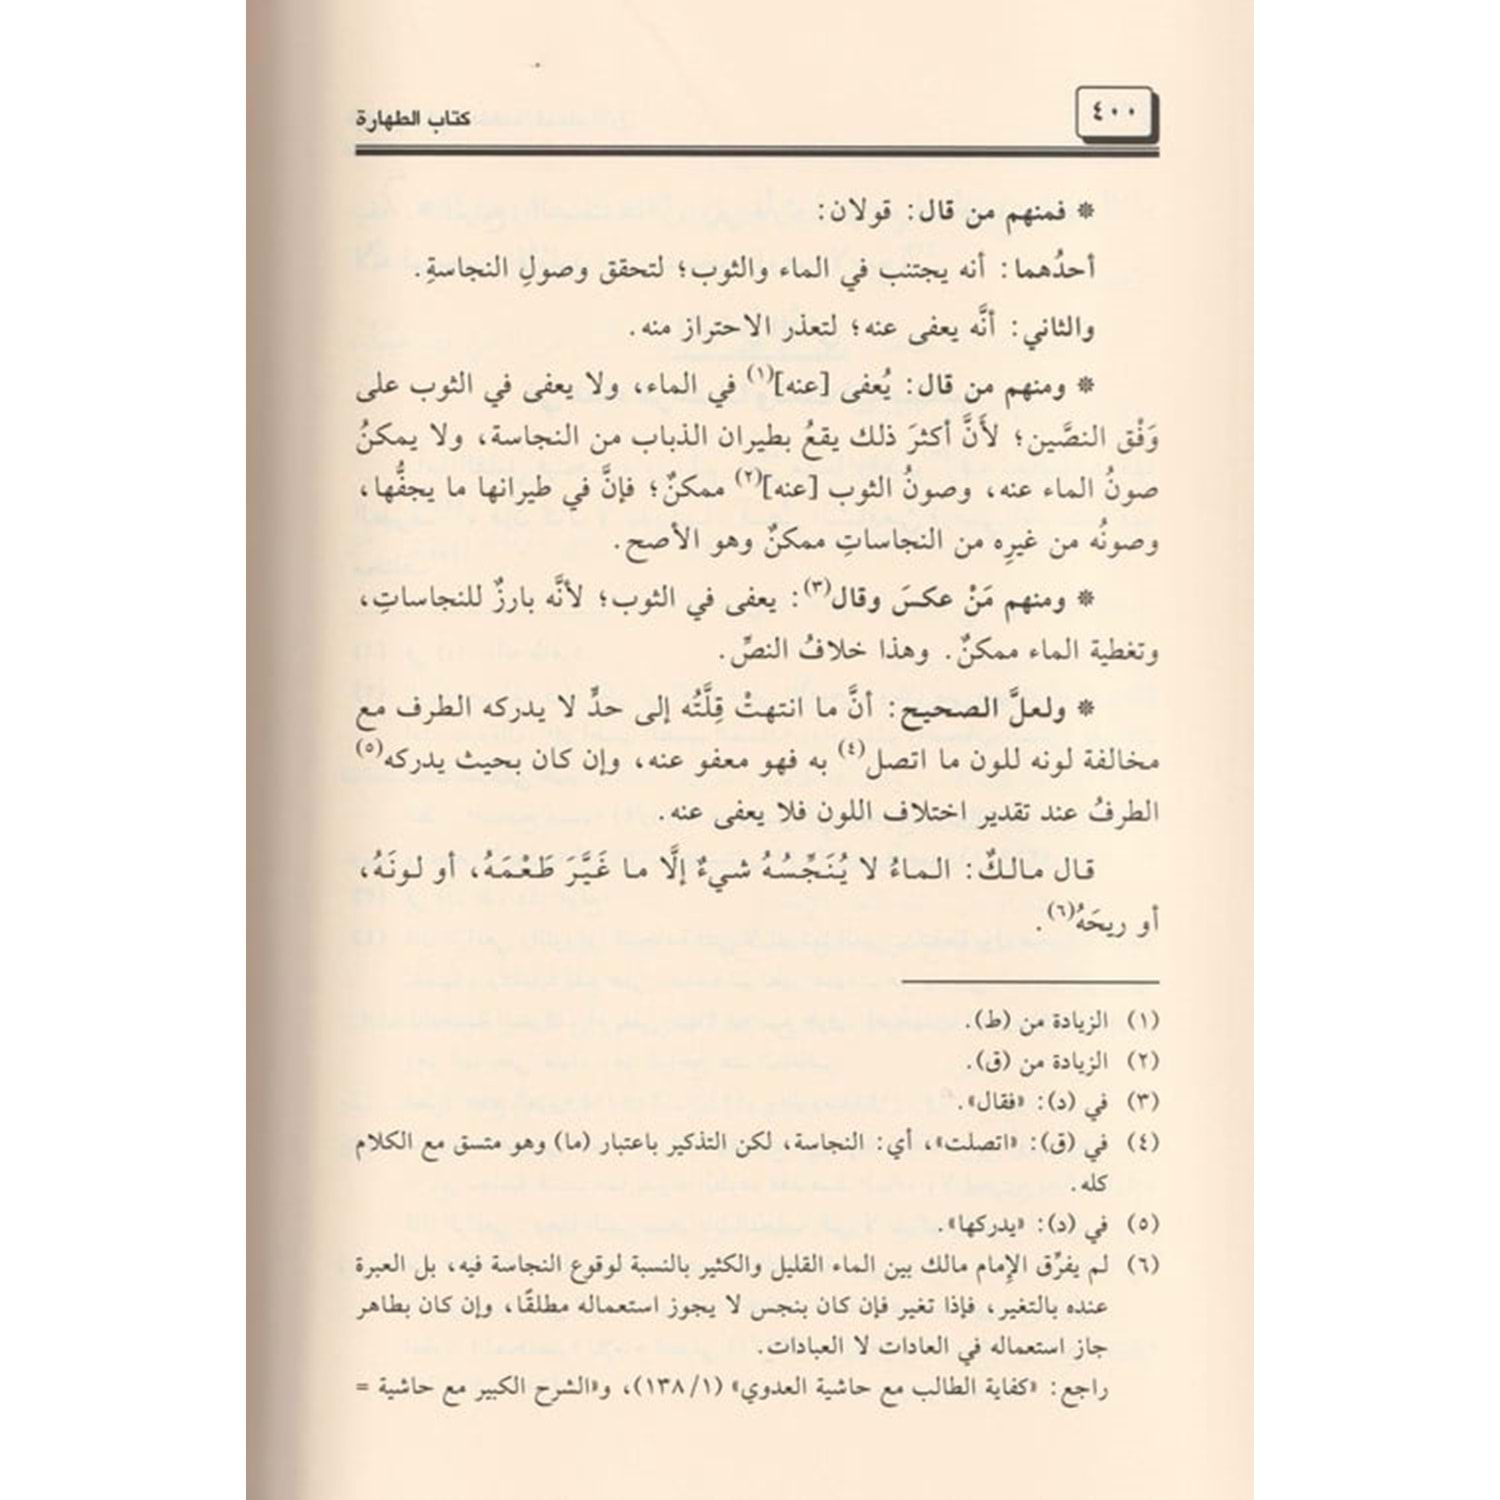 ٤٠٠
كتاب الطهارة
* فمنهم من قال: قولان:
أحدُهما: أنه يجتنب في الماء والثوب؛ لتحقق وصولِ النجاسةِ.
والثاني: أنَّه يعفى عنه؛ لتعذر الاحتراز منه.
* ومنهم من قال: يُعفى [عنه](١) في الماء، ولا يعفى في الثوب على
وَفْق النصَّين؛ لأَنَّ أكثرَ ذلك يقعُ بطيران الذباب من النجاسة، ولا يمكنُ
صونُ الماء عنه، وصونُ الثوب [عنه](٢) ممكنٌ؛ فإنَّ في طيرانها ما يجفُّها،
وصونُه من غيرِه من النجاساتِ ممكنٌ وهو الأصح.
* ومنهم مَنْ عكسَ وقال(٣): يعفى في الثوب؛ لأنَّه بارزٌ للنجاساتِ،
وتغطية الماء ممكنٌ. وهذا خلافُ النصِّ.
* ولعلَّ الصحيح: أنَّ ما انتهتْ قِلَّتُه إلى حدٍّ لا يدركه الطرف مع
مخالفة لونه للون ما اتصل(٤) به فهو معفو عنه، وإن كان بحيث يدركه(٥)
الطرفُ عند تقدير اختلاف اللون فلا يعفى عنه.
قال مالكٌ: الماءُ لا يُنَجِّسُهُ شيءٌ إلَّا ما غَيَّرَ طَعْمَهُ، أو لونَهُ،
أو ريحَهُ(٦).
(١) الزيادة من (ط).
(٢) الزيادة من (ق).
(٣) في (د): «فقال».
(٤) في (ق): «اتصلت»، أي: النجاسة، لكن التذكير باعتبار (ما) وهو متسق مع الكلام
كله.
(٥) في (د): «يدركها».
(٦) لم يفرِّق الإمام مالك بين الماء القليل والكثير بالنسبة لوقوع النجاسة فيه، بل العبرة
عنده بالتغير، فإذا تغير فإن كان بنجس لا يجوز استعماله مطلقًا، وإن كان بطاهر
جاز استعماله في العادات لا العبادات.
راجع: «كفاية الطالب مع حاشية العدوي» (١/ ١٣٨)، و«الشرح الكبير مع حاشية =